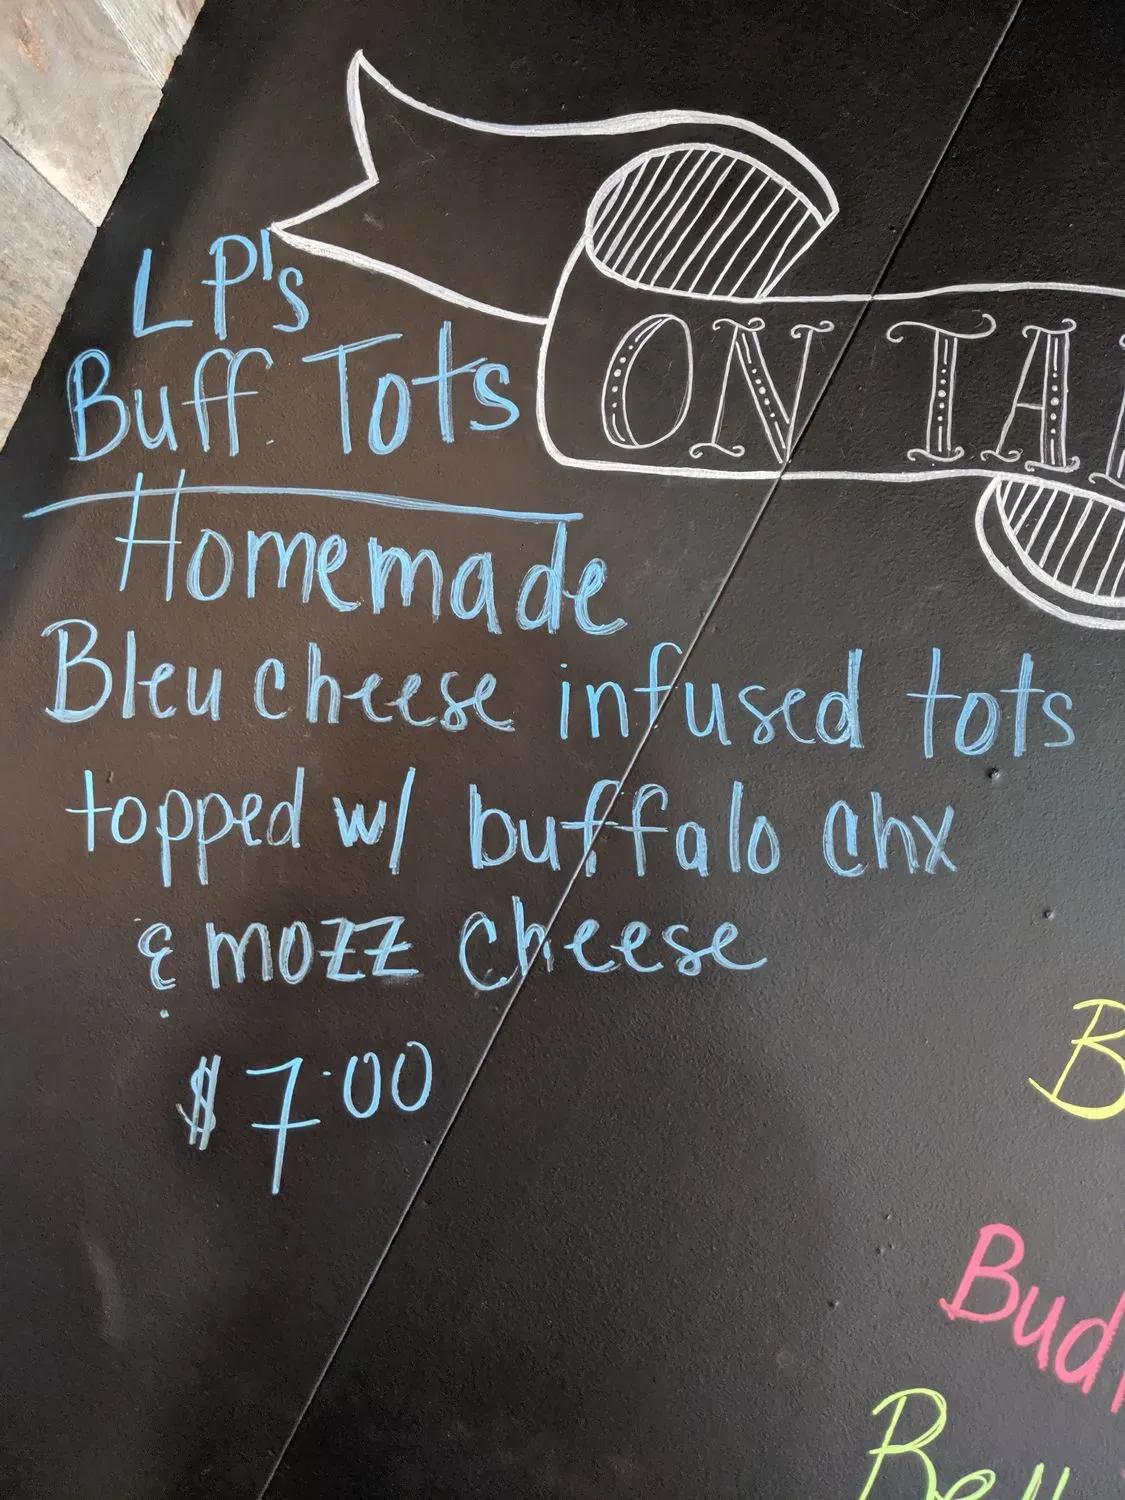 LP's
Buff Tots
Homemade
Bleu cheese infused tots
topped w/ buffalo chx
& mozz cheese
$7.00
ON TA
Bud